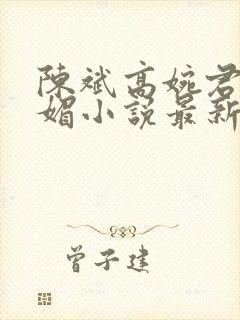 陳斌高婉君
媚小說最新
曾子建